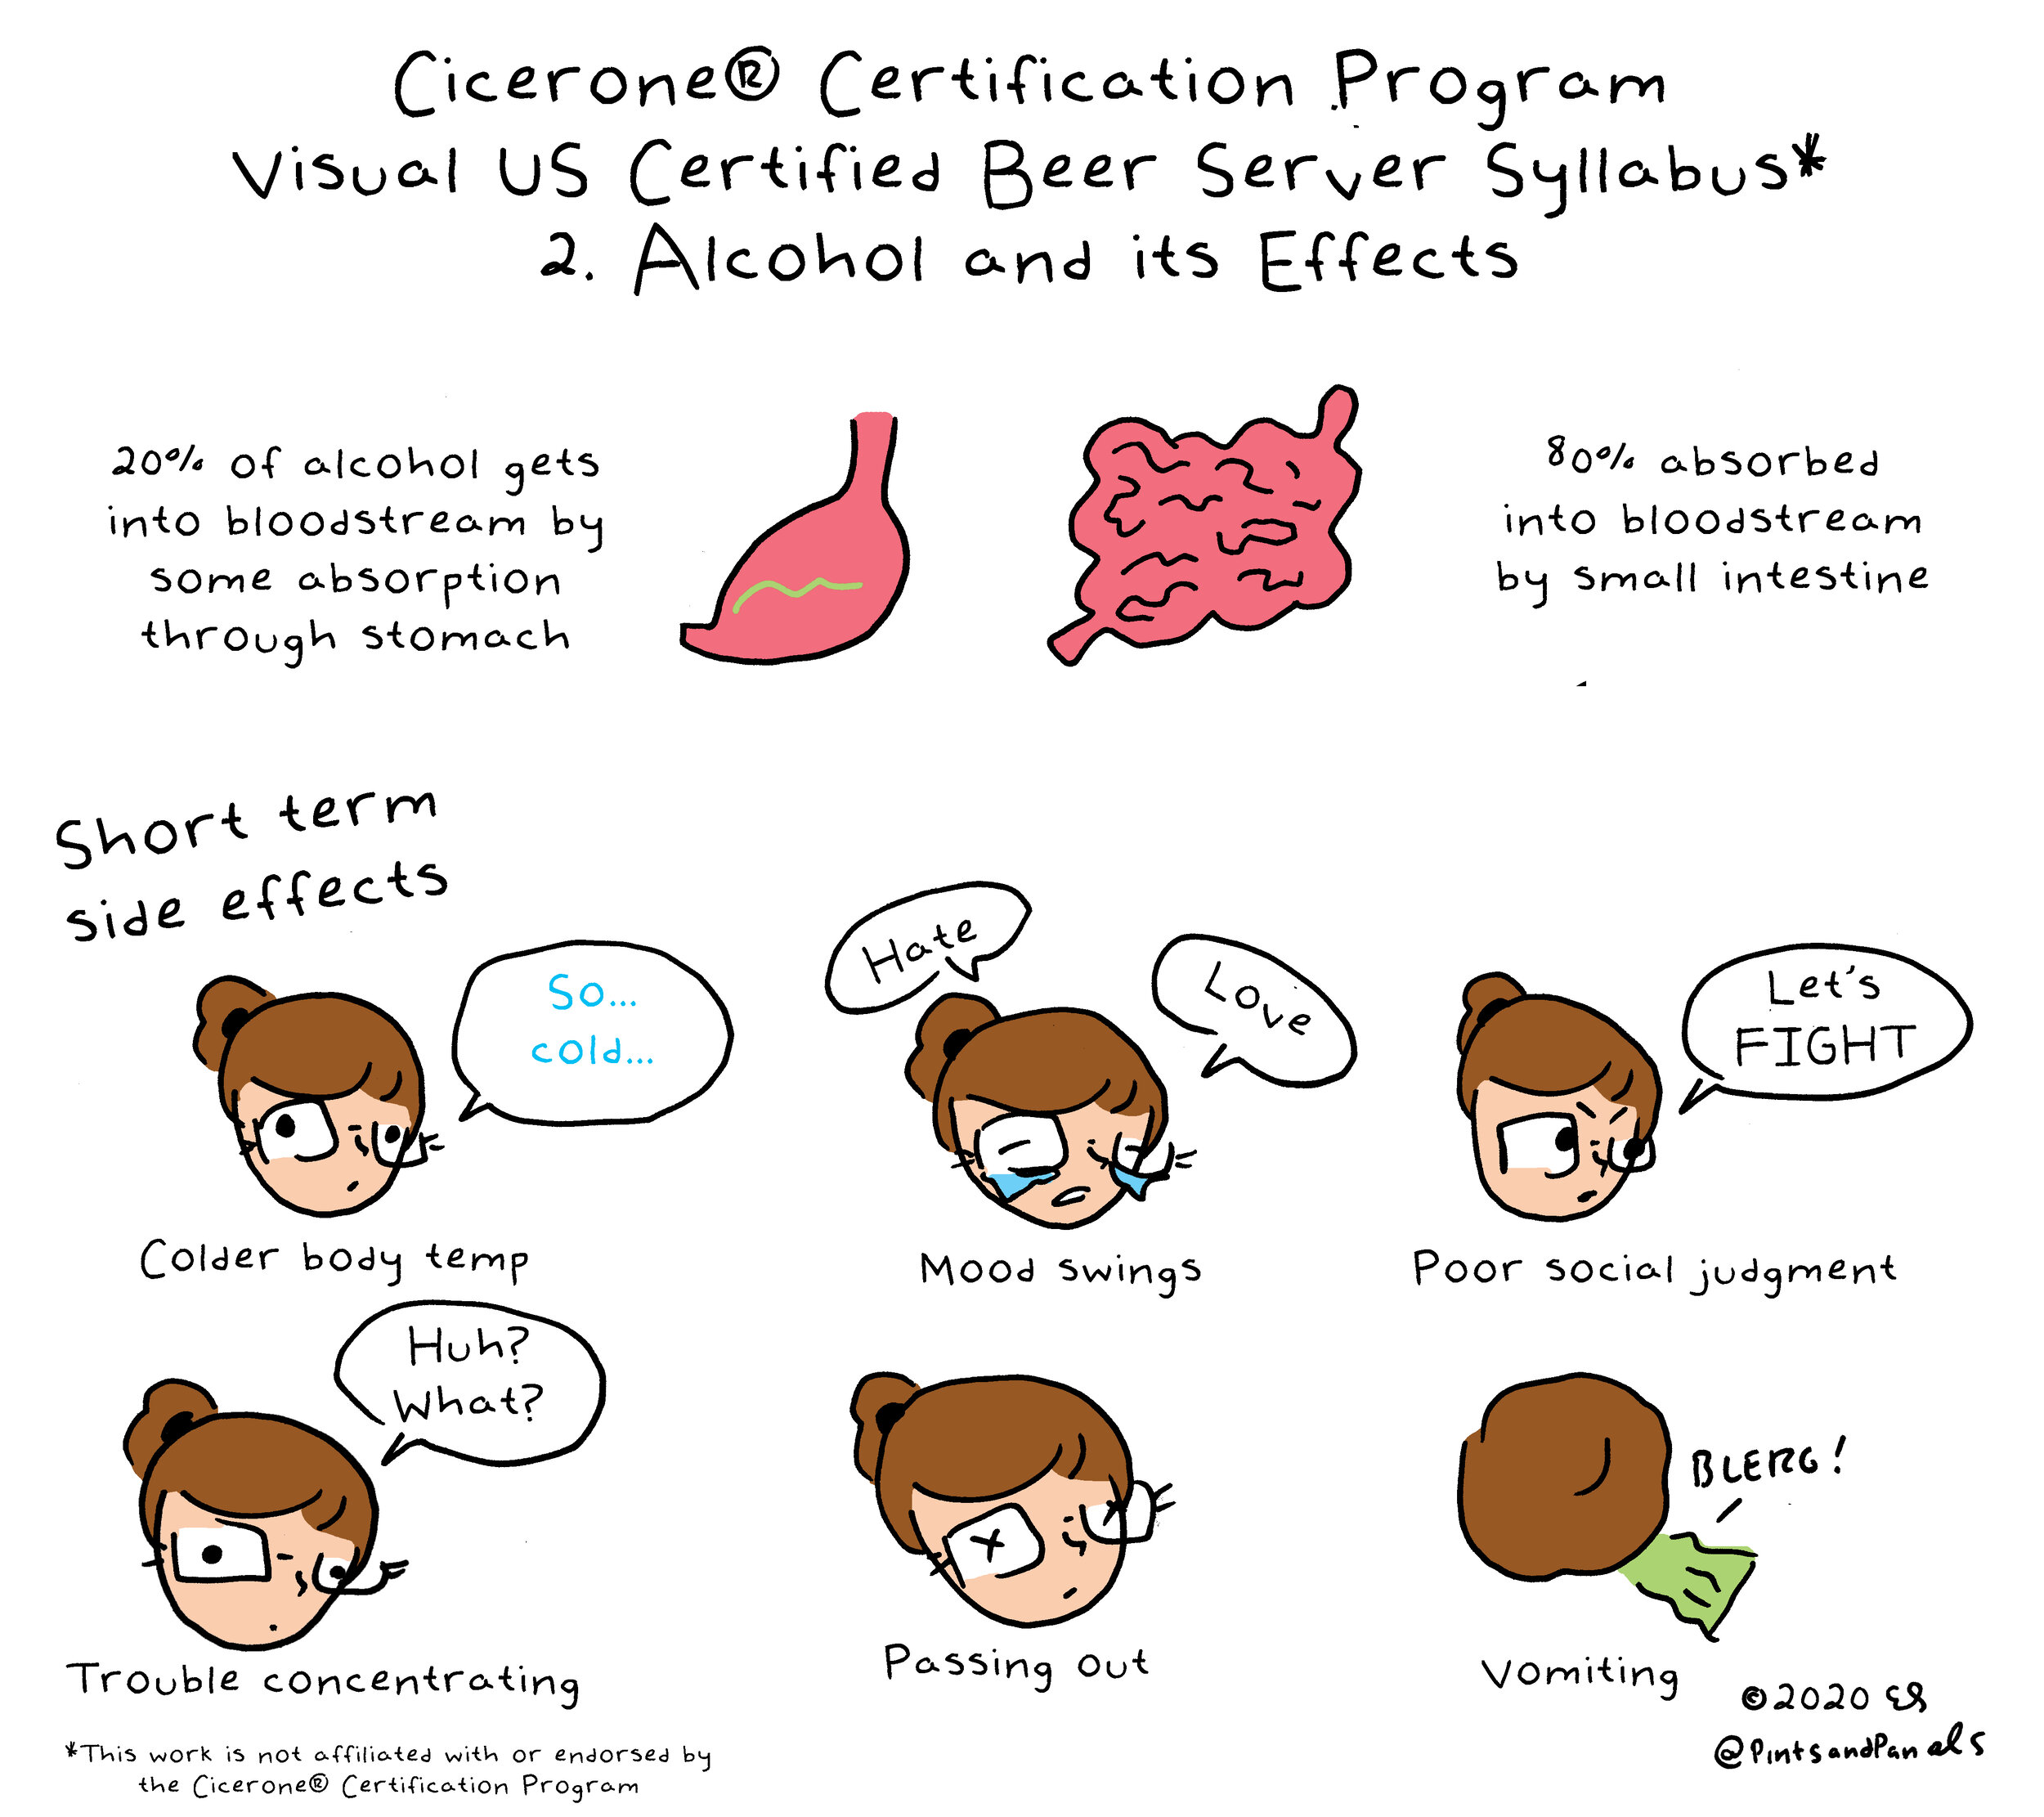 Cicerone® Certification Program
Visual US Certified Beer Server Syllabus*
2. Alcohol and its Effects
20% of alcohol gets
into bloodstream by
some absorption
through stomach
80% absorbed
into bloodstream
by small intestine
Short term
side effects
So...
cold...
Colder body temp
Hate
Love
Mood swings
Let's
FIGHT
Poor social judgment
Huh?
What?
Trouble concentrating
Passing out
BLERG!
Vomiting
©2020 ES
@PintsandPanels
*This work is not affiliated with or endorsed by
the Cicerone® Certification Program